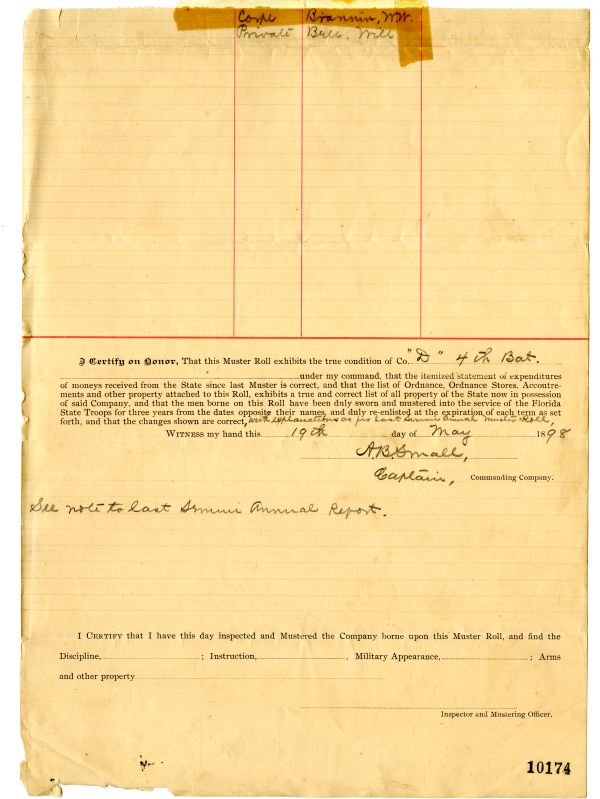 Corpl Brannin, W.W.
Private Bell, Will
I Certify on Honor, That this Muster Roll exhibits the true condition of Co. "D" 4th Bat.
under my command, that the itemized statement of expenditures
of moneys received from the State since last Muster is correct, and that the list of Ordnance, Ordnance Stores, Accoutre-
ments and other property attached to this Roll, exhibits a true and correct list of all property of the State now in possession
of said Company, and that the men borne on this Roll have been duly sworn and mustered into the service of the Florida
State Troops for three years from the dates opposite their names, and duly re-enlisted at the expiration of each term as set
forth, and that the changes shown are correct, with explanations as per last Semmi Annual Muster Roll,
WITNESS my hand this 19th day of May 1898
A.B. Small,
Captain, Commanding Company.
See note to last Semmi Annual Report.
I CERTIFY that I have this day inspected and Mustered the Company borne upon this Muster Roll, and find the
Discipline, ; Instruction, , Military Appearance, ; Arms
and other property
Inspector and Mustering Officer.
10174